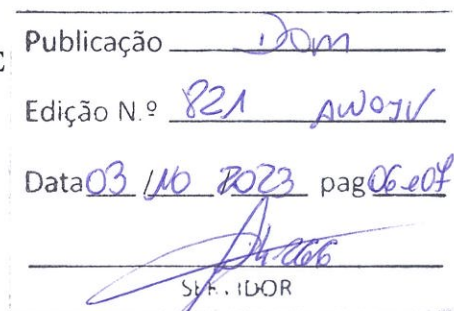 E
Publicação DOM
Edição N.º 821 ANO IV
Data 03 / 10 2023 pag 06 e 07
SERVIDOR